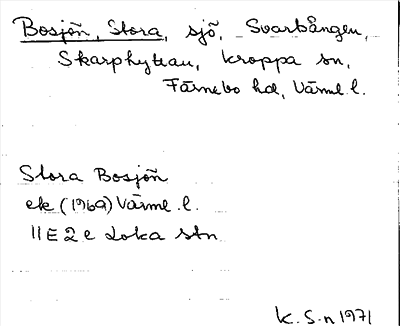 Bosjön, Stora, sjö, Svartången,
Skarphyttan, Kroppa sn,
Färnebo hd, Värml. l.
Stora Bosjön
ek (1969) Värml. l.
11E 2e Loka stn
K. S-n 1971